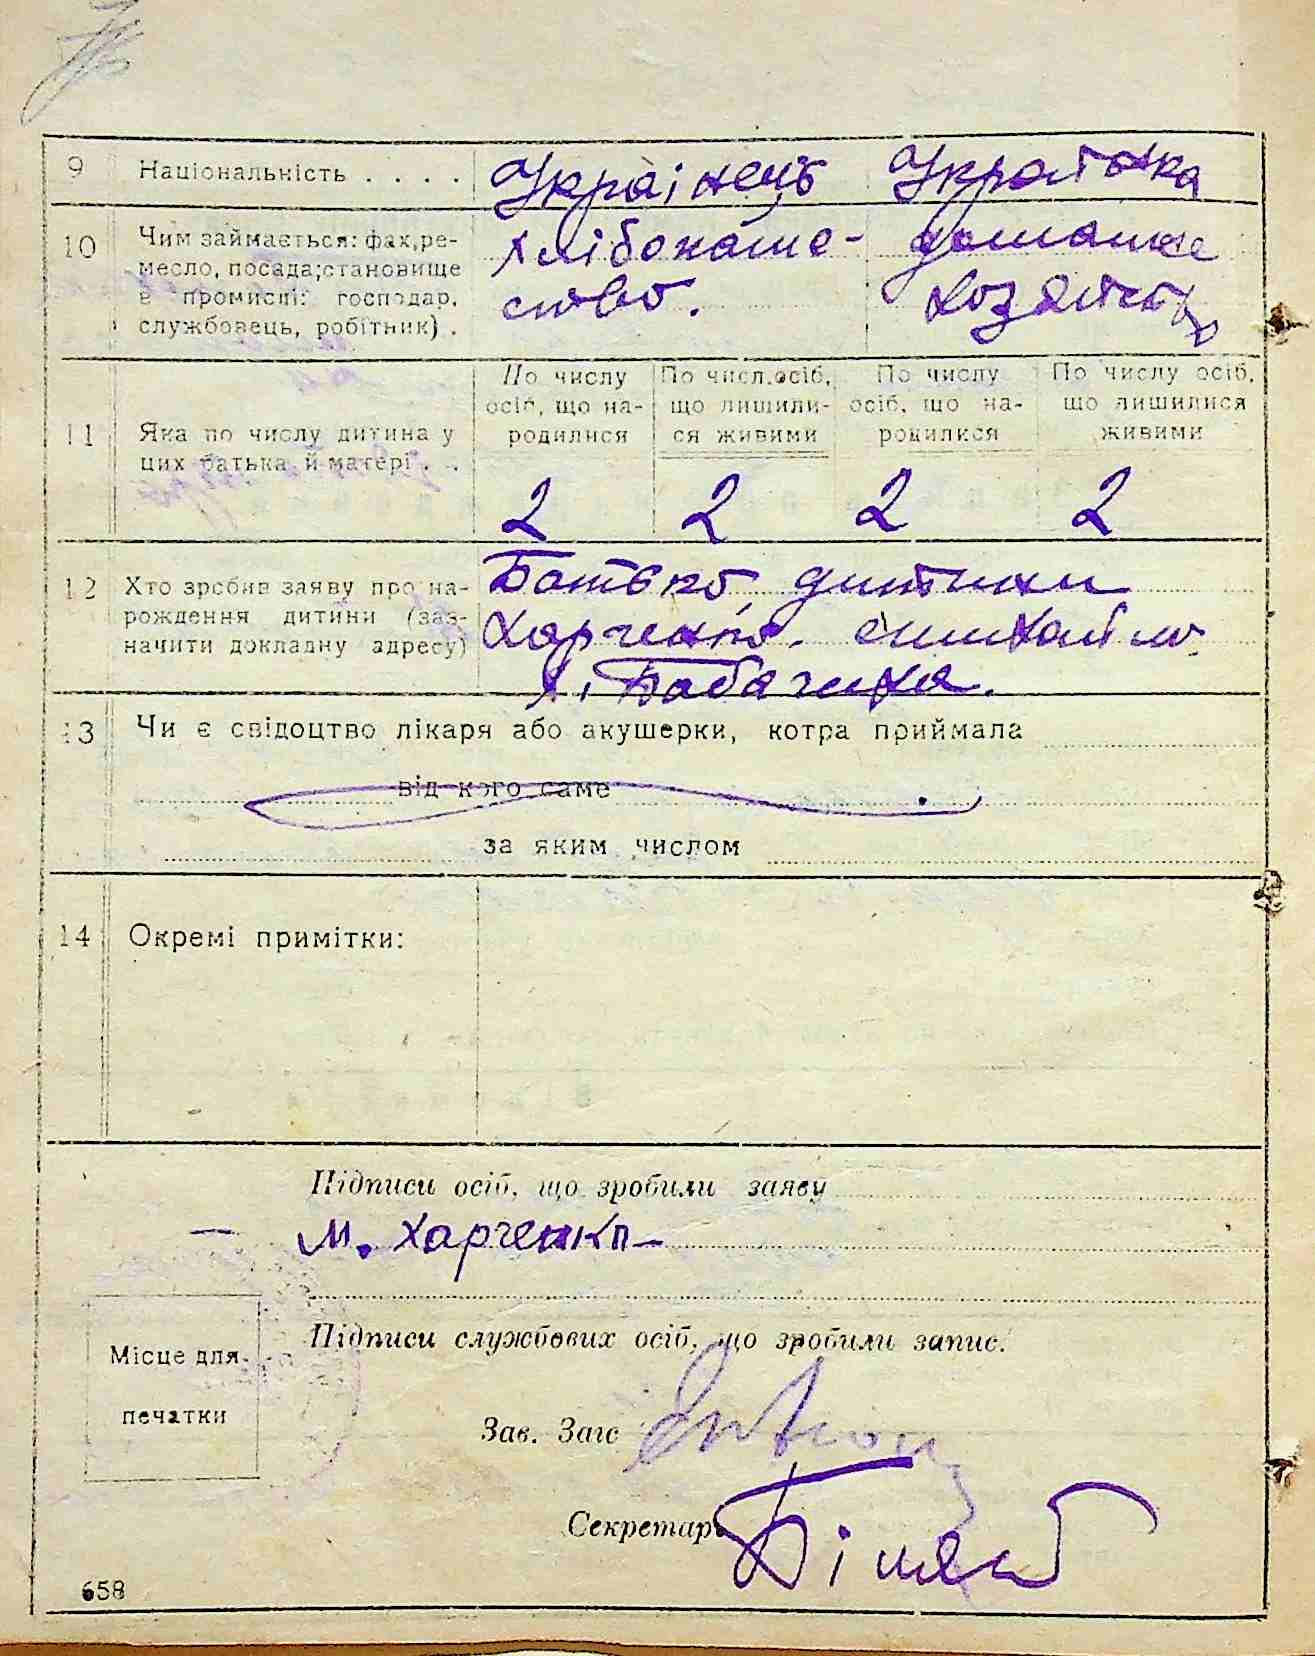 9 Національність . . . . Украінець Украінка
10 Чим займається: фах, ре-
месло, посада; становище
в промислі: господар,
службовець, робітник) .
хлібопаше-
ство.
домашнє
хозяйство
11 Яка по числу дитина у
цих батька й матері . .
По числу
осіб, що на-
родилися
По числ. осіб,
що лишили-
ся живими
По числу
осіб, що на-
родилися
По числу осіб,
що лишилися
живими
2 2 2 2
12 Хто зробив заяву про на-
рождення дитини (заз-
начити докладну адресу)
Батько, дитини
Харченко. Михайло
х. Бабачиха.
13 Чи є свідоцтво лікаря або акушерки, котра приймала
від кого саме
за яким числом
14 Окремі примітки:
Підписи осіб, що зробили заяву
— М. Харченко —
Підписи службових осіб, що зробили запис.
Місце для
печатки
Зав. Загс
Секретар
658